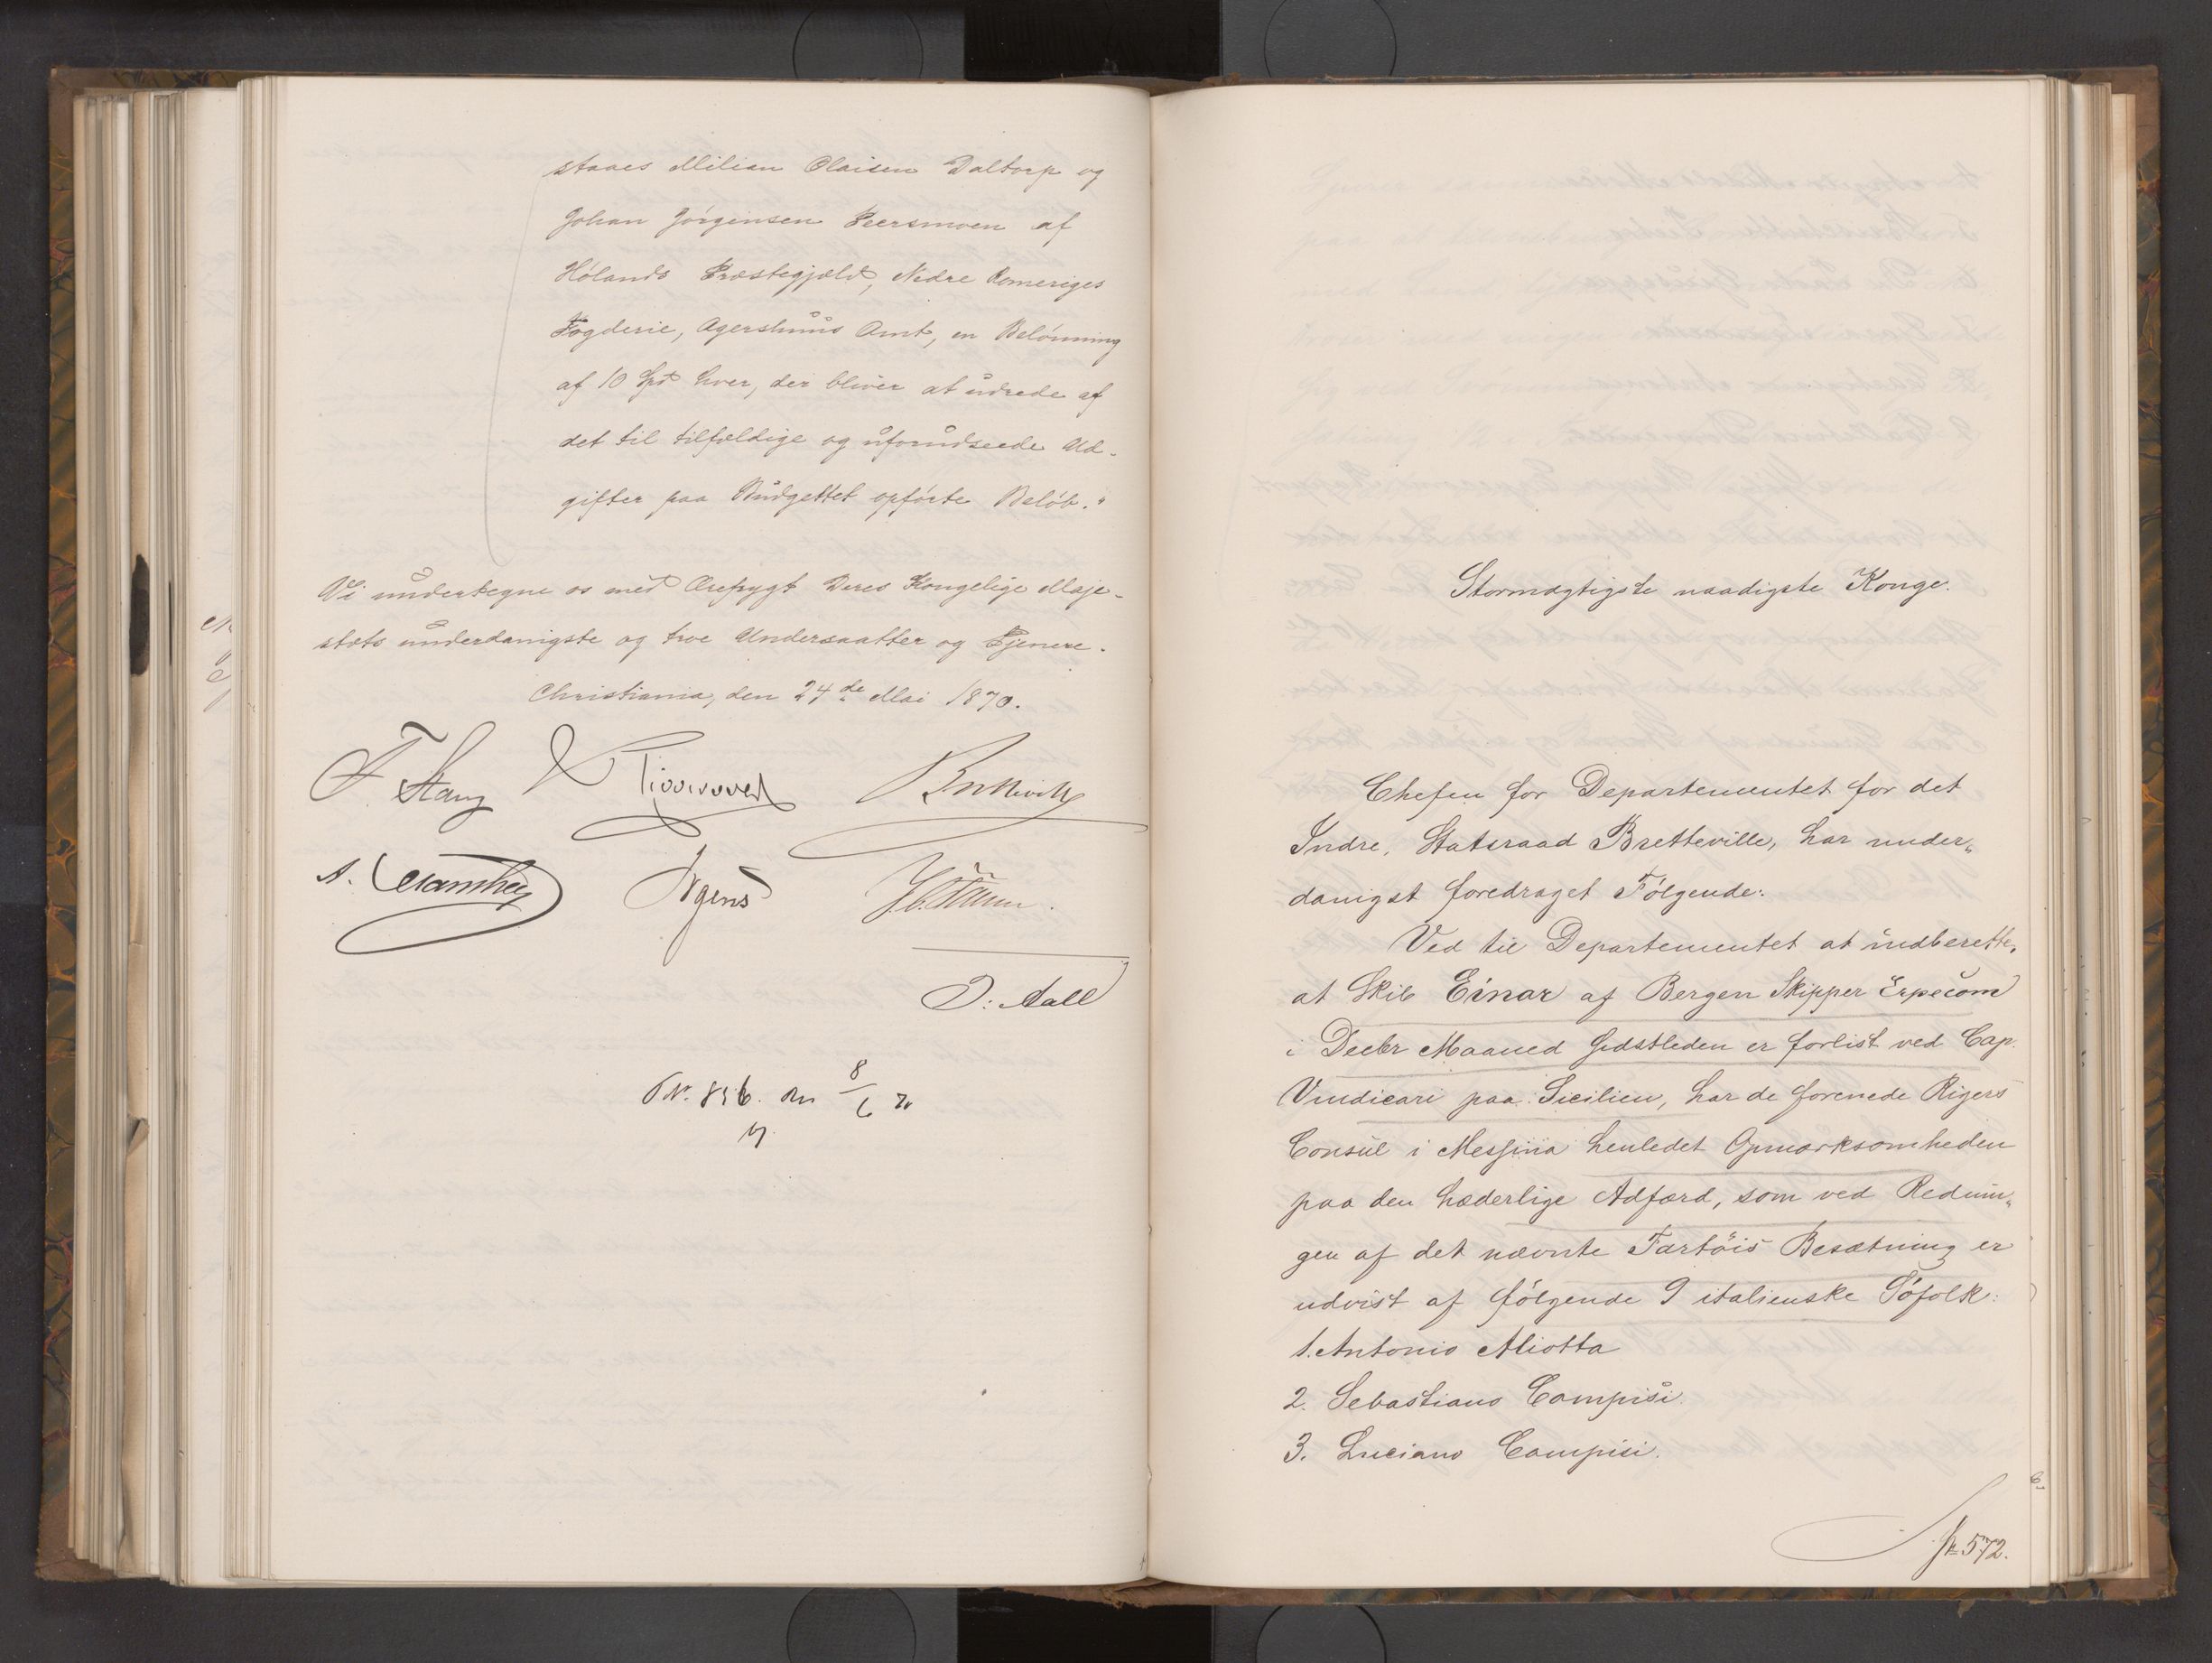 staaes Milian Olaisen Daltorp og
Johan Jörgensen Peersmoen af
Hölands Præstegjæld, Nedre Romeriges
Fogderie, Agershuus Amt, en Belönning
af 10 Spd hver, der bliver at udrede af
det til tilfældige og uforudseede Ud-
gifter paa Budgettet opförte Belöb."
Vi undertegne os med Ærefrygt Deres Kongelige Maje-
stæts underdanigste og troe Undersaatter og Tjenere.
Christiania, den 24de Mai 1870.
F. Stang Bretteville
Irgens
J. Aall
No. 856.
8
6
Stormægtigste naadigste Konge.
Chefen for Departementet for det
Indre, Statsraad Bretteville, har under-
danigst foredraget Fölgende:
Ved til Departementet at indberette,
at Skib Einar af Bergen Skipper Erpecom
i Decbr Maaned sidstleden er forlist ved Cap
Vindicari paa Sicilien, har de forenede Rigers
Consul i Messina henledet Opmærksomheden
paa den hæderlige Adfærd, som ved Rednin-
gen af det nævnte Fartöis Besætning er
udvist af fölgende 9 italienske Söfolk:
1. Antonio Aliotta
2. Sebastiano Campisi.
3. Luciano Campisi.
572.